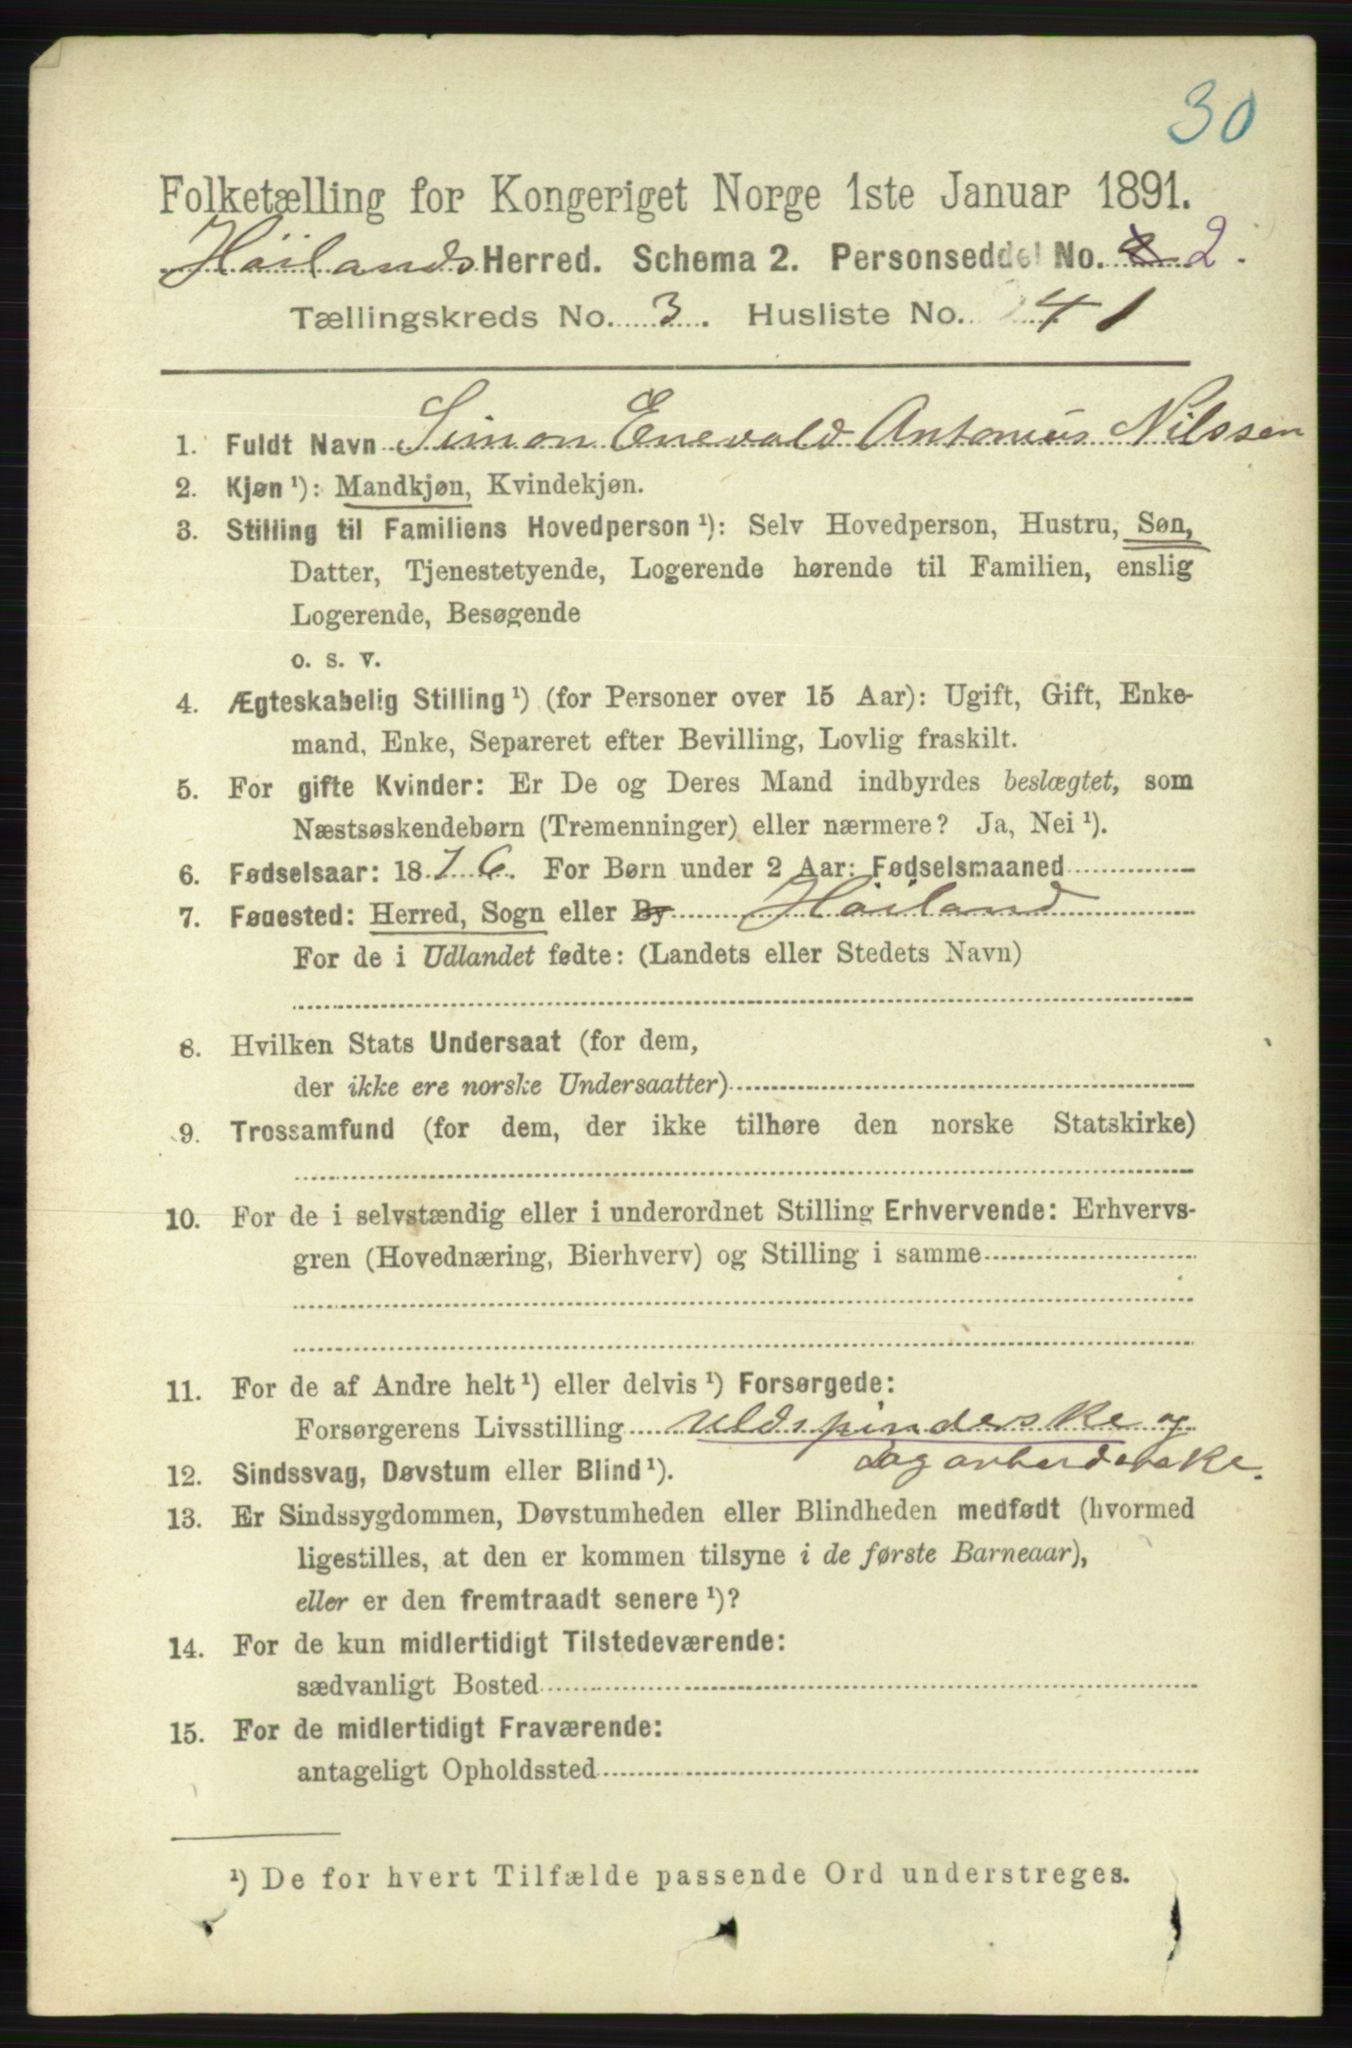 30
Folketælling for Kongeriget Norge 1ste Januar 1891.
Höilands Herred. Schema 2. Personseddel No. 2.
Tællingskreds No. 3. Husliste No. 41
1. Fuldt Navn Simon Enevald Antonius Nilssen
2. Kjøn ¹): Mandkjøn, Kvindekjøn.
3. Stilling til Familiens Hovedperson ¹): Selv Hovedperson, Hustru, Søn,
Datter, Tjenestetyende, Logerende hørende til Familien, enslig
Logerende, Besøgende
o. s. v.
4. Ægteskabelig Stilling ¹) (for Personer over 15 Aar): Ugift, Gift, Enke-
mand, Enke, Separeret efter Bevilling, Lovlig fraskilt.
5. For gifte Kvinder: Er De og Deres Mand indbyrdes beslægtet, som
Næstsøskendebørn (Tremenninger) eller nærmere? Ja, Nei ¹).
6. Fødselsaar: 1876. For Børn under 2 Aar: Fødselsmaaned
7. Føuested: Herred, Sogn eller By Höiland
For de i Udlandet fødte: (Landets eller Stedets Navn)
8. Hvilken Stats Undersaat (for dem,
der ikke ere norske Undersaatter)
9. Trossamfund (for dem, der ikke tilhøre den norske Statskirke)
10. For de i selvstændig eller i underordnet Stilling Erhvervende: Erhvervs-
gren (Hovednæring, Bierhverv) og Stilling i samme
11. For de af Andre helt ¹) eller delvis ¹) Forsørgede:
Forsørgerens Livsstilling Uldspinderske og
Dagarbeiderske.
12. Sindssvag, Døvstum eller Blind ¹).
13. Er Sindssygdommen, Døvstumheden eller Blindheden medfødt (hvormed
ligestilles, at den er kommen tilsyne i de første Barneaar),
eller er den fremtraadt senere ¹)?
14. For de kun midlertidigt Tilstedeværende:
sædvanligt Bosted
15. For de midlertidigt Fraværende:
antageligt Opholdssted
¹) De for hvert Tilfælde passende Ord understreges.